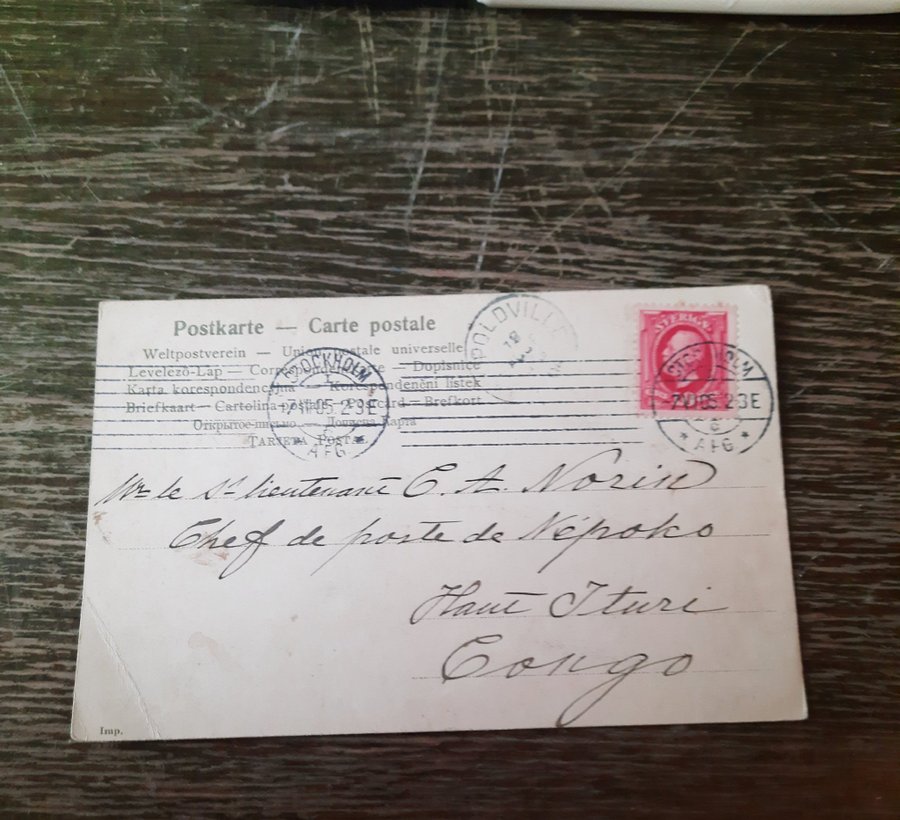 Postkarte — Carte postale
Weltpostverein — Union postale universelle
Levelező-Lap — Correspondenzkarte — Dopisnice
Karta korespondencyjna — Korespondenční lístek
Briefkaart — Cartolina postale — Postcard — Brefkort
Открытое письмо — Почтовая Карта
TARJETA POSTAL
STOCKHOLM
7 11 05 2-3E
6
AFG
POLDVILLE
SVERIGE
STOCKHOLM
7 11 05 2-3E
6
AFG
Mr le St lieutenant C. A. Norin
Chef de poste de Népoko
Haut Ituri
Congo
Imp.